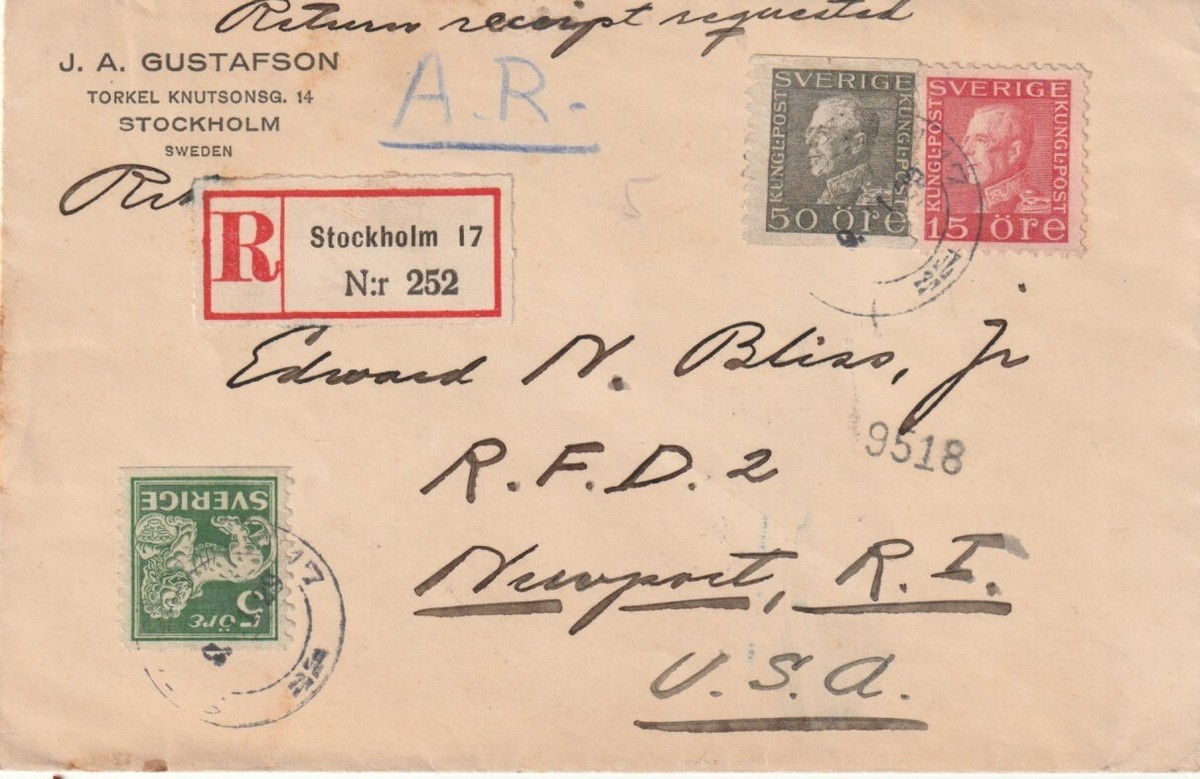 Return receipt requested
J. A. GUSTAFSON
TORKEL KNUTSONSG. 14
STOCKHOLM
SWEDEN
A.R.
R
Stockholm 17
N:r 252
SVERIGE
KUNGL·POST
KUNGL·POST
50 öre
SVERIGE
KUNGL·POST
KUNGL·POST
15 öre
17
Edward N. Bliss, Jr
R.F.D. 2
9518
Newport, R.I.
U.S.A.
SVERIGE
5 öre
17